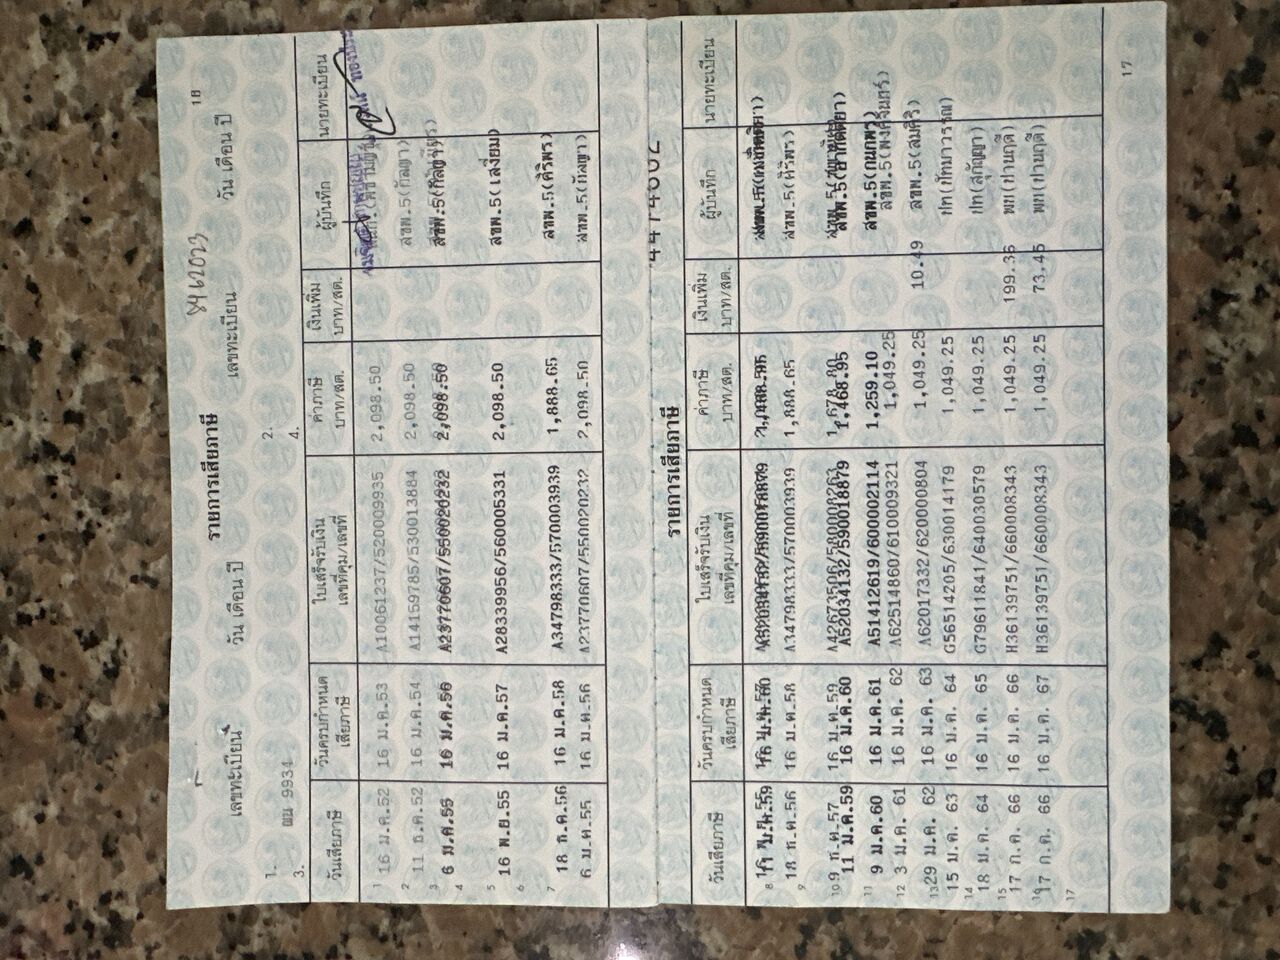 18
รายการเสียภาษี
เลขทะเบียน วัน เดือน ปี เลขทะเบียน วัน เดือน ปี
1. ผน 9934 2.
3. 4.
วันเสียภาษี วันครบกำหนดเสียภาษี ใบเสร็จรับเงิน เลขที่คุม/เลขที่ ค่าภาษี บาท/สต. เงินเพิ่ม บาท/สต. ผู้บันทึก นายทะเบียน
1 16 ม.ค.52 16 ม.ค.53 A10061237/520009935 2,098.50
2 11 ธ.ค.52 16 ม.ค.54 A14159785/530013884 2,098.50 สขพ.5(กัลญา)
3 6 ม.ค.55 16 ม.ค.56 A23770607/550020232 2,098.50
4
5 16 พ.ย.55 16 ม.ค.57 A28339956/560005331 2,098.50 สขพ.5(เสงี่ยม)
6
7 18 ธ.ค.56 16 ม.ค.58 A34798333/570003939 1,888.65 สขพ.5(ศิริพร)
6 ม.ค.55 16 ม.ค.56 A23770607/550020232 2,098.50 สขพ.5(กัลญา)
รายการเสียภาษี
วันเสียภาษี วันครบกำหนดเสียภาษี ใบเสร็จรับเงิน เลขที่คุม/เลขที่ ค่าภาษี บาท/สต. เงินเพิ่ม บาท/สต. ผู้บันทึก นายทะเบียน
8
18 ธ.ค.56 16 ม.ค.58 A34798333/570003939 1,888.65 สขพ.5(ศิริพร)
9
10 9 ธ.ค.57 16 ม.ค.59
11 ม.ค.59 16 ม.ค.60 A52034132/590018879 1,468.95
11 9 ม.ค.60 16 ม.ค.61 A51412619/600002114 1,259.10 สขพ.5(กนกพร)
12 3 ม.ค. 61 16 ม.ค. 62 A62514860/610009321 1,049.25
13 29 ม.ค. 62 16 ม.ค. 63 A62017332/620000804 1,049.25 10.49 สขพ.5(สมศิริ)
15 ม.ค. 63 16 ม.ค. 64 G56514205/630014179 1,049.25
14 18 ม.ค. 64 16 ม.ค. 65 G79611841/640030579 1,049.25 ปท(สุกัญญา)
15 17 ก.ค. 66 16 ม.ค. 66 H36139751/660008343 1,049.25 199.36 พท(ปานฤดี)
16 17 ก.ค. 66 16 ม.ค. 67 H36139751/660008343 1,049.25 73.45 พท(ปานฤดี)
17
17